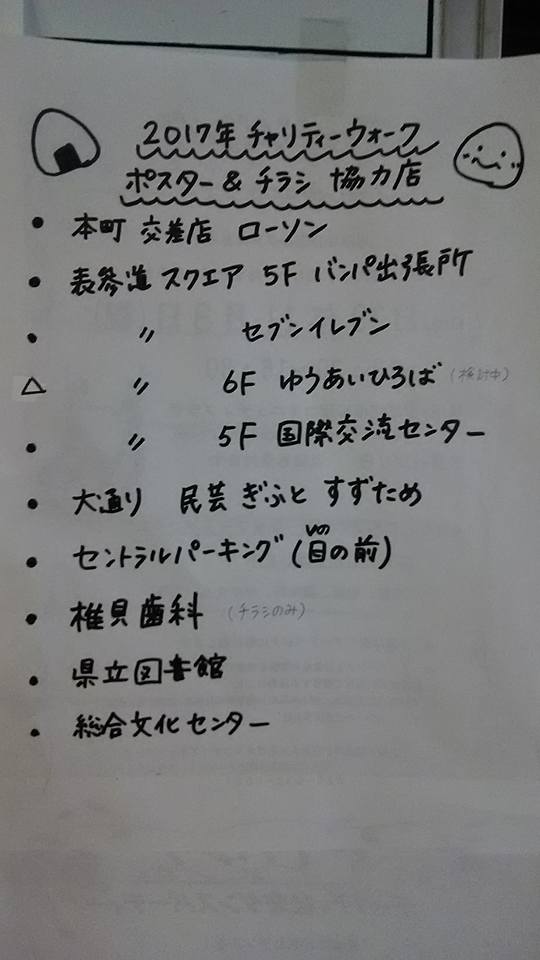 2017年 チャリティーウォーク
ポスター & チラシ 協力店
• 本町 交差店 ローソン
• 表参道 スクエア 5F バンパ出張所
• 〃 セブンイレブン
△ 〃 6F ゆうあいひろば (検討中)
• 〃 5F 国際交流センター
• 大通り 民芸 ぎふと すずため
• セントラルパーキング (目の前)
• 椎貝歯科 (チラシのみ)
• 県立図書館
• 総合文化センター